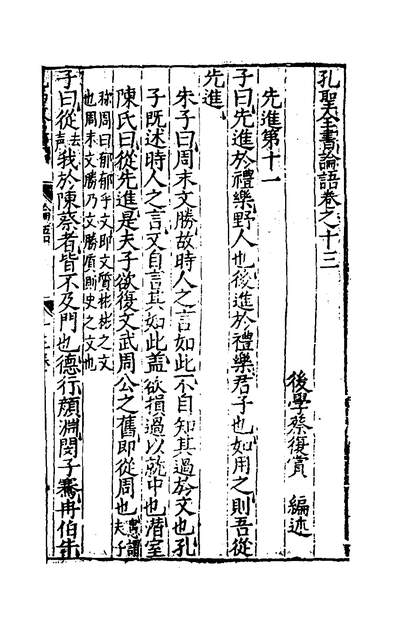 孔聖全書論語卷之十三
後學蔡復賞 編述
先進第十一
子曰先進於禮樂野人也後進於禮樂君子也如用之則吾從
先進
朱子曰周末文勝故時人之言如此不自知其過於文也孔
子既述時人之言又自言其如此蓋欲損過以就中也潛室
陳氏曰從先進是夫子欲復文武周公之舊即從周也愚謂夫子
称周曰郁郁乎文即文質彬彬之文
也周末文勝乃文勝質則史之文也
子曰從去聲我於陳蔡者皆不及門也德行顏淵閔子騫冉伯牛
論語